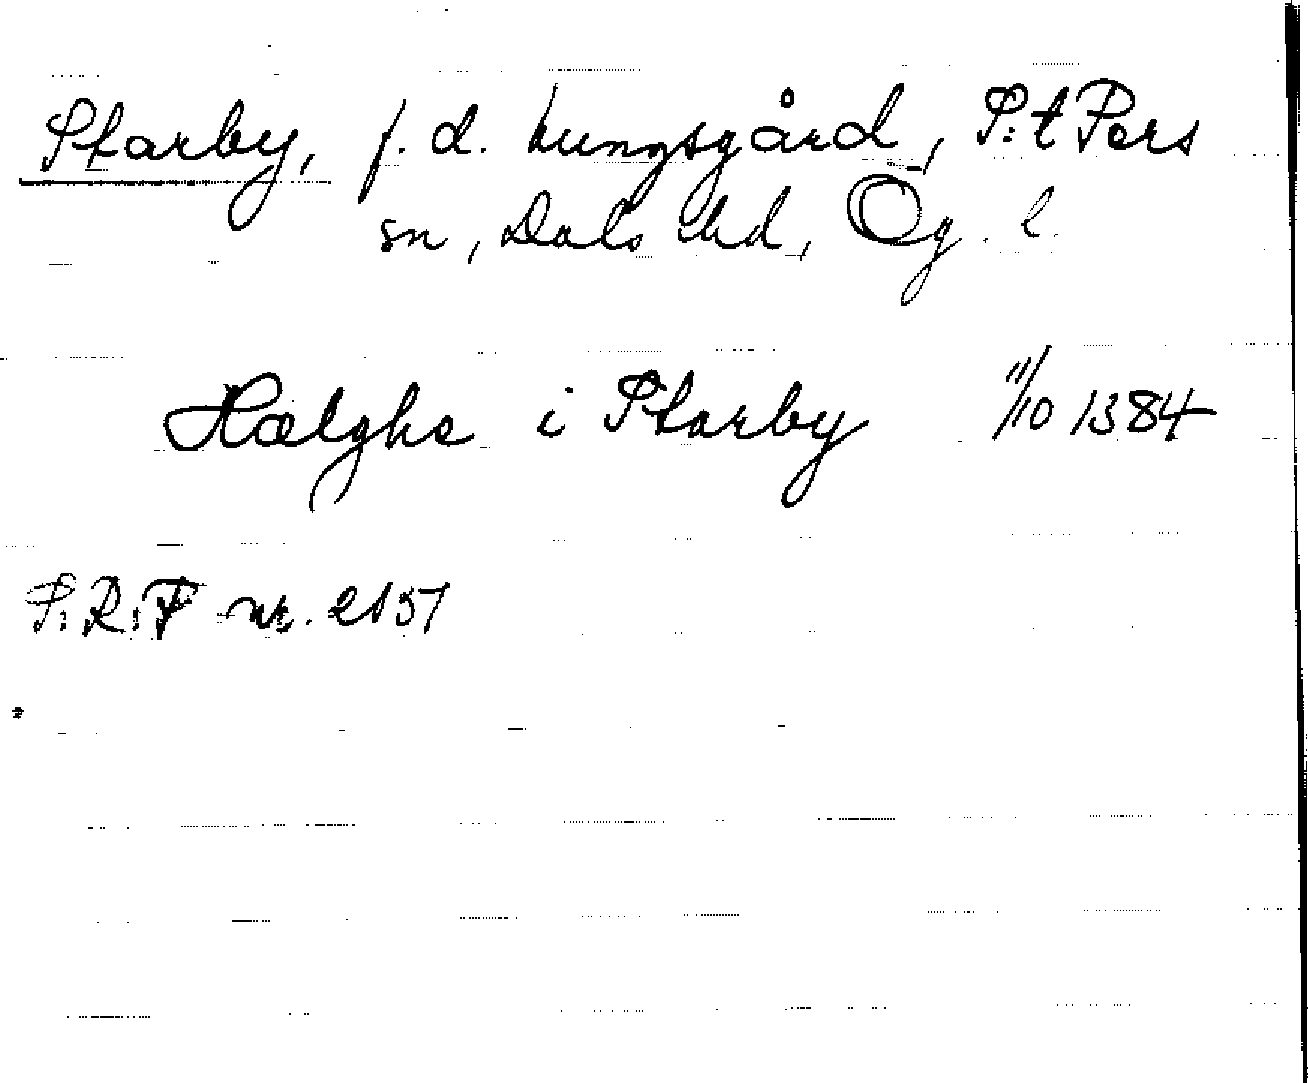 Starby, f.d. kungsgård, S:t Pers
sn, Dals hd, Ög. l.
Hælghe i Starby 11/10 1384
S.R.P nr. 2151